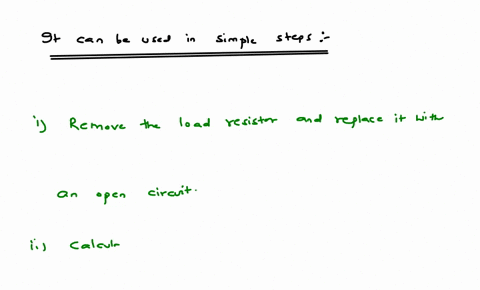 It can be used in simple steps :-
i) Remove the load resistor and replace it with
an open circuit.
ii) Calcula